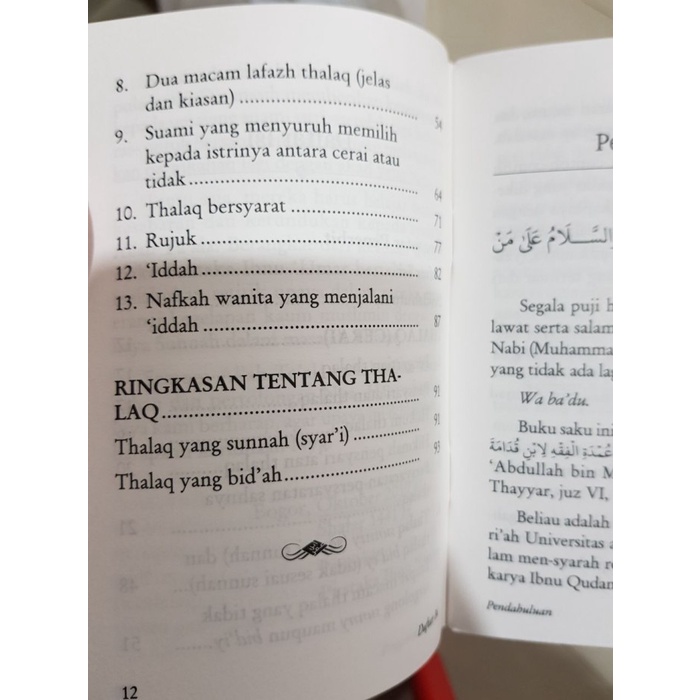 8. Dua macam lafazh thalaq (jelas
dan kiasan) .......... 54
9. Suami yang menyuruh memilih
kepada istrinya antara cerai atau
tidak .......... 64
10. Thalaq bersyarat .......... 71
11. Rujuk .......... 77
12. ‘Iddah .......... 82
13. Nafkah wanita yang menjalani
‘iddah .......... 87
RINGKASAN TENTANG THA-
LAQ .......... 91
Thalaq yang sunnah (syar’i) .......... 91
Thalaq yang bid’ah .......... 93
12
Pe
السَّلَامُ عَلَى مَنْ
Segala puji
lawat serta salam
Nabi (Muhamma
yang tidak ada la
Wa ba’du.
Buku saku ini
عُمْدَةِ الْفِقْهِ لِابْنِ قُدَامَةَ
‘Abdullah bin M
Thayyar, juz VI,
Beliau adalah
ri’ah Universitas
lam men-syarah
karya Ibnu Qudan
Pendahuluan